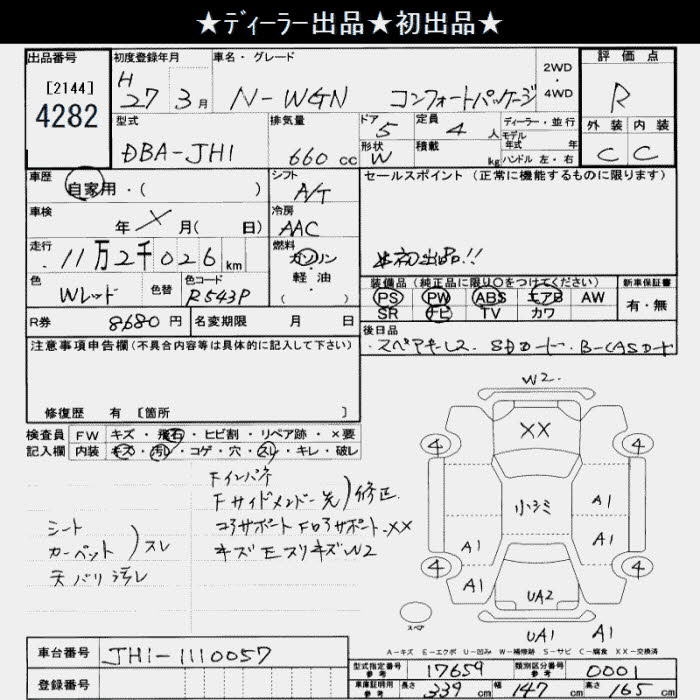 ★ディーラー出品★初出品★
出品番号 初度登録年月 車名・グレード 2WD・4WD 評価点
[2144] 4282
H 27年 3月 N-WGN コンフォートパッケージ R
型式 排気量 ドア 定員 ディーラー・並行 外装 内装
DBA-JH1 660cc 5 4人 モデル年式 年 C C
形状 W 積載 kg ハンドル 左・右
車歴 自家用・( ) シフト A/T セールスポイント (正常に機能するものに限ります)
車検 年 X 月( 日) 冷房 AAC
走行 11万2千026km 燃料 ガソリン・軽油 ( ) ☆初出品!!
色 Wレッド 色替 色コード R543P
装備品 (純正品に限り○をつけてください) 新車保証書
PS PW ABS エアB AW 有・無
SR ナビ TV カワ
R券 8680円 名変期限 月 日 後日品
・スペアキーレス. SDカード. B-CASカード
注意事項申告欄(不具合内容等は具体的に記入して下さい)
修復歴 有 [箇所 ]
検査員 FW キズ・飛石・ヒビ割・リペア跡・×要
記入欄 内装 キズ・汚レ・コゲ・穴・スレ・キレ・破レ
Fインパネ
Fサイドメンバー先)修正
コアサポート Fロアサポート XX
キズ モスリキズW2
シート
カーペット)スレ
天バリ汚レ
W2
XX
4 4
小シミ A1
A1 A1
4 A1 A1 4
UA2
スペア UA1
A-キズ E-エクボ U-凹み W-補修跡 S-サビ C-腐食 XX-交換済
車台番号 JH1-1110057
登録番号
型式指定番号 参考 17659 類別区分番号 参考 0001
車庫証明用 参考 長さ 339cm 幅 147cm 高さ 165cm